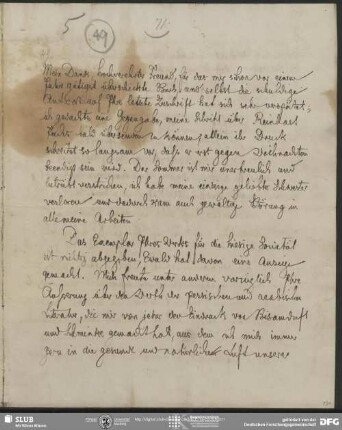 5
49
71.
Mein Dank, hochverehrter Freund, für das mir schon vor einem
Jahr gütigst überschickte Buch, und selbst die schuldige
Antwort auf Ihre letzte Zuschrift hat sich sehr verspätet,
ich gedachte eine Gegengabe, meine Schrift über Reinhart
Fuchs bald übersenden zu können, allein ihr Druck
schreitet so langsam vor, daß er erst gegen Weihnachten
beendigt sein wird. Der Sommer ist mir unerfreulich und
betrübt verstrichen, ich habe meine einzige geliebte Schwester
verloren und dadurch kam auch gewaltige Störung in
alle meine Arbeiten.
Das Exemplar Ihres Werks für die hiesige Societät
ist richtig abgegeben, Ewald hat davon eine Anzeige
gemacht. Mich freute unter anderen vorzüglich Ihre
Äußerung über den Werth der persischen und arabischen
Literatur, die mir von jeher den Eindruck von Bisamduft
und Schminke gemacht hat, aus dem ich mich immer
gern in die gesunde und natürliche Luft unserer
SLUB
Wir führen Wissen.
gefördert von der
Deutschen Forschungsgemeinschaft
DFG